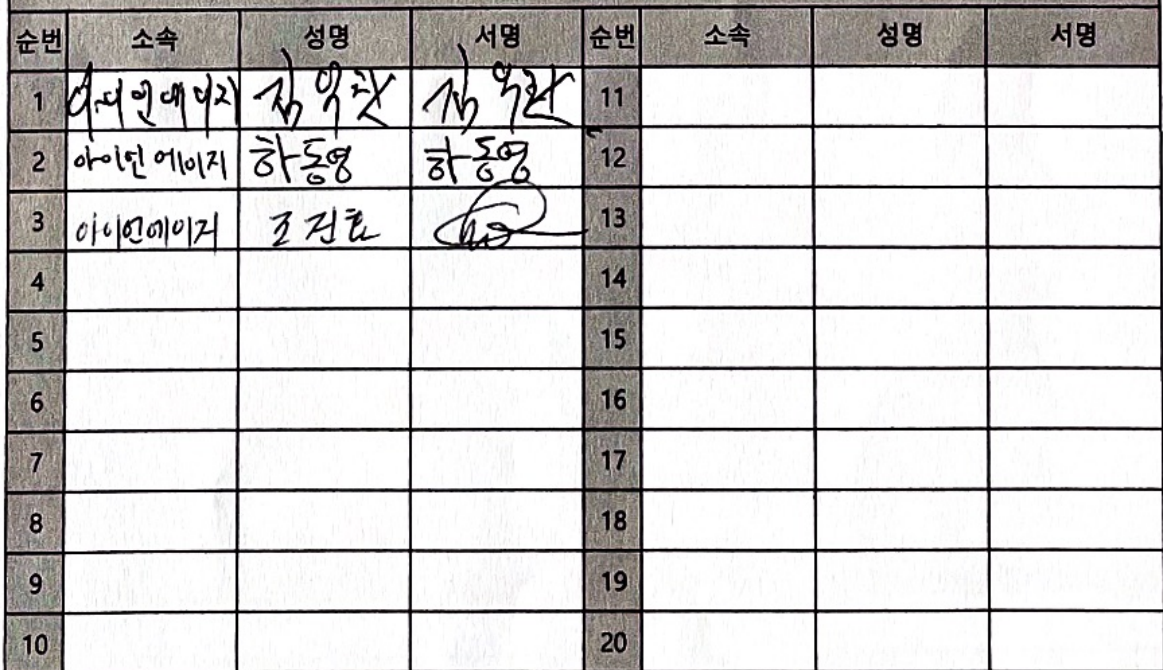 순번 소속 성명 서명 순번 소속 성명 서명
1 11
2 아이인에이지 하동영 하동영 12
3 아이인에이지 조진호 13
4 14
5 15
6 16
7 17
8 18
9 19
10 20